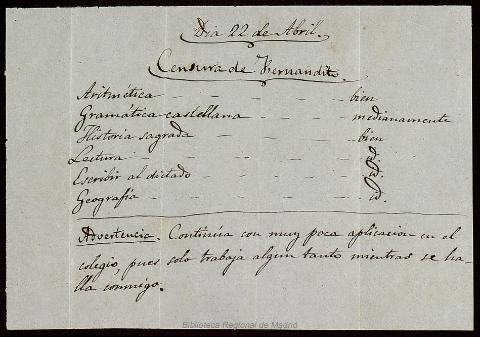 Dia 22 de Abril.
Censura de Fernandito.
Aritmética - - - - - - bien
Gramática castellana - - - - medianamente
Historia sagrada - - - - - bien
Lectura - - - - - - id.
Escribir al dictado - - - - id.
Geografía - - - - - - id.
Advertencia. Continúa con muy poca aplicacion en el
colegio, pues solo trabaja algun tanto mientras se ha-
lla conmigo.
Biblioteca Regional de Madrid